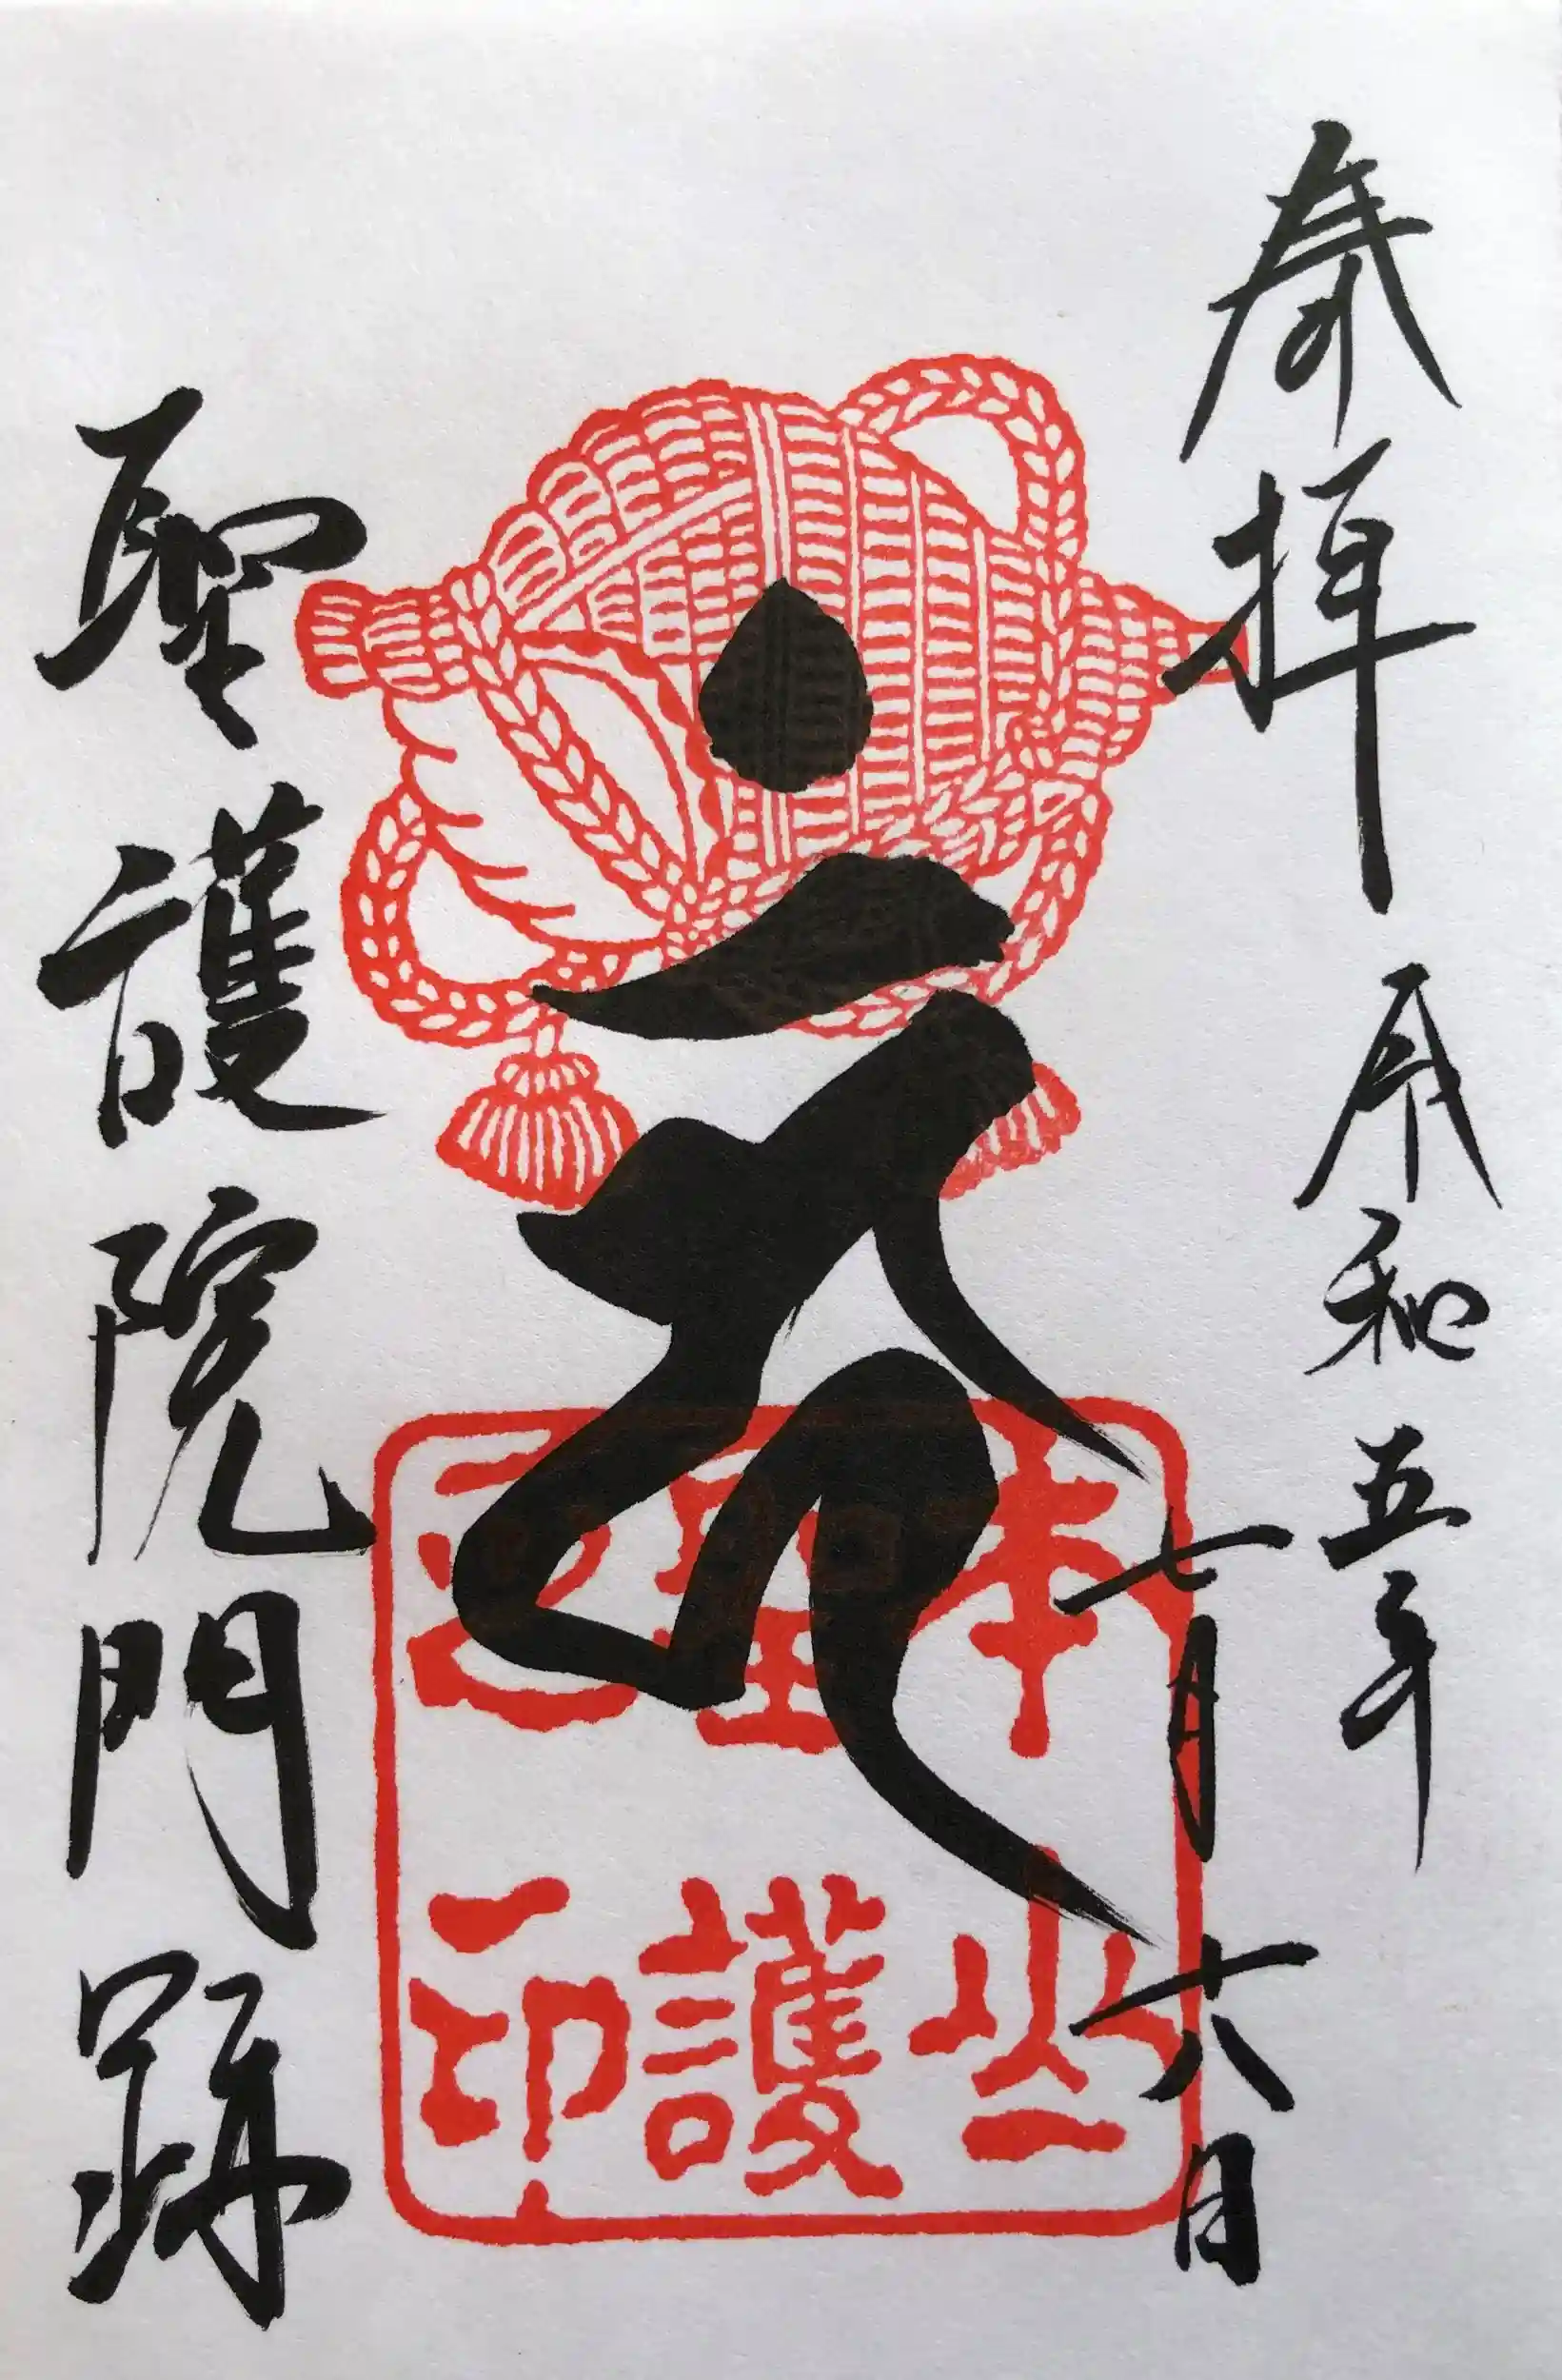 奉拝
令和五年
七月十八日
本山
聖護
印
聖護院門跡